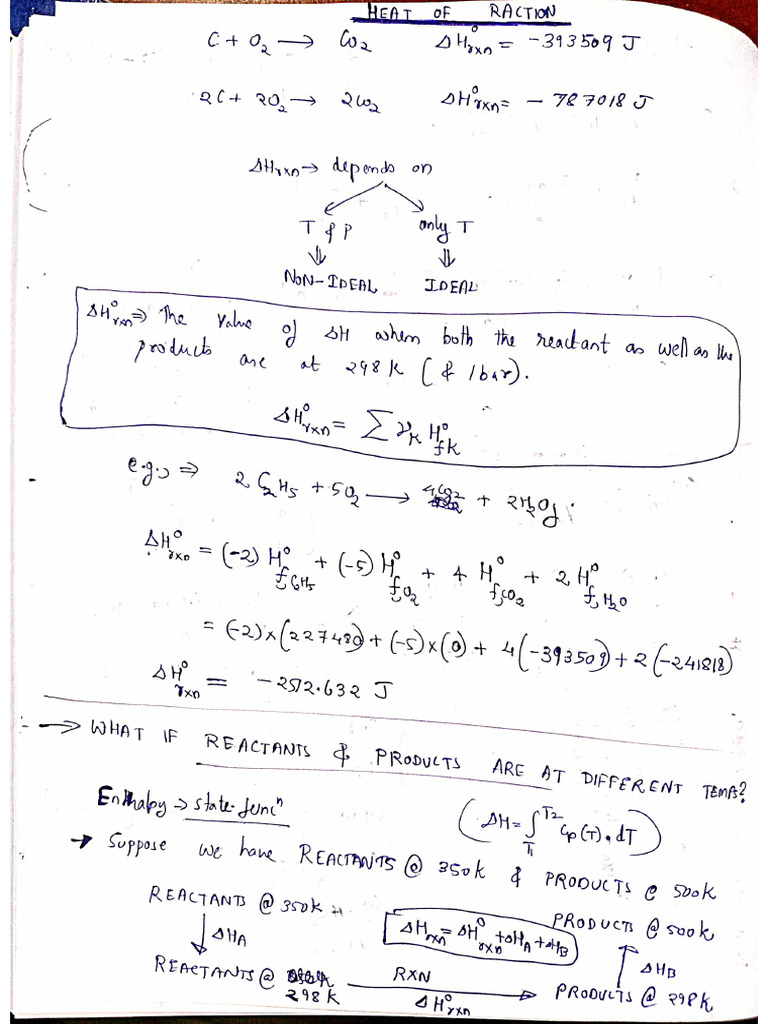 HEAT OF RACTION
C + O₂ → CO₂ ΔH°rxn = -393509 J
2C + 2O₂ → 2CO₂ ΔH°rxn = - 787018 J
ΔHrxn → depends on
T & P only T
⇓ ⇓
NON-IDEAL IDEAL
ΔH°rxn ⇒ The value of ΔH when both the reactant as well as the
products are at 298 K (& 1 bar).
ΔH°rxn = Σ νK H°fK
e.g., ⇒ 2 C₂H₅ + 5O₂ → 4CO₂ + 2H₂O
ΔH°rxn = (-2) H°f,C₂H₅ + (-5) H°f,O₂ + 4 H°f,CO₂ + 2 H°f,H₂O
= (-2) x (227480) + (-5) x (0) + 4 (-393509) + 2 (-241818)
ΔH°rxn = -2512.632 J
→ WHAT IF REACTANTS & PRODUCTS ARE AT DIFFERENT TEMPS?
Enthalpy → state funcⁿ (ΔH = ∫T₁T₂ Cp(T).dT)
→ Suppose we have REACTANTS @ 350K & PRODUCTS @ 500K
REACTANTS @ 350K PRODUCTS @ 500K
ΔHrxn = ΔH°rxn + ΔHA + ΔHB
↓ ΔHA ↑ ΔHB
REACTANTS @ 298K RXN → ΔH°rxn PRODUCTS @ 298K